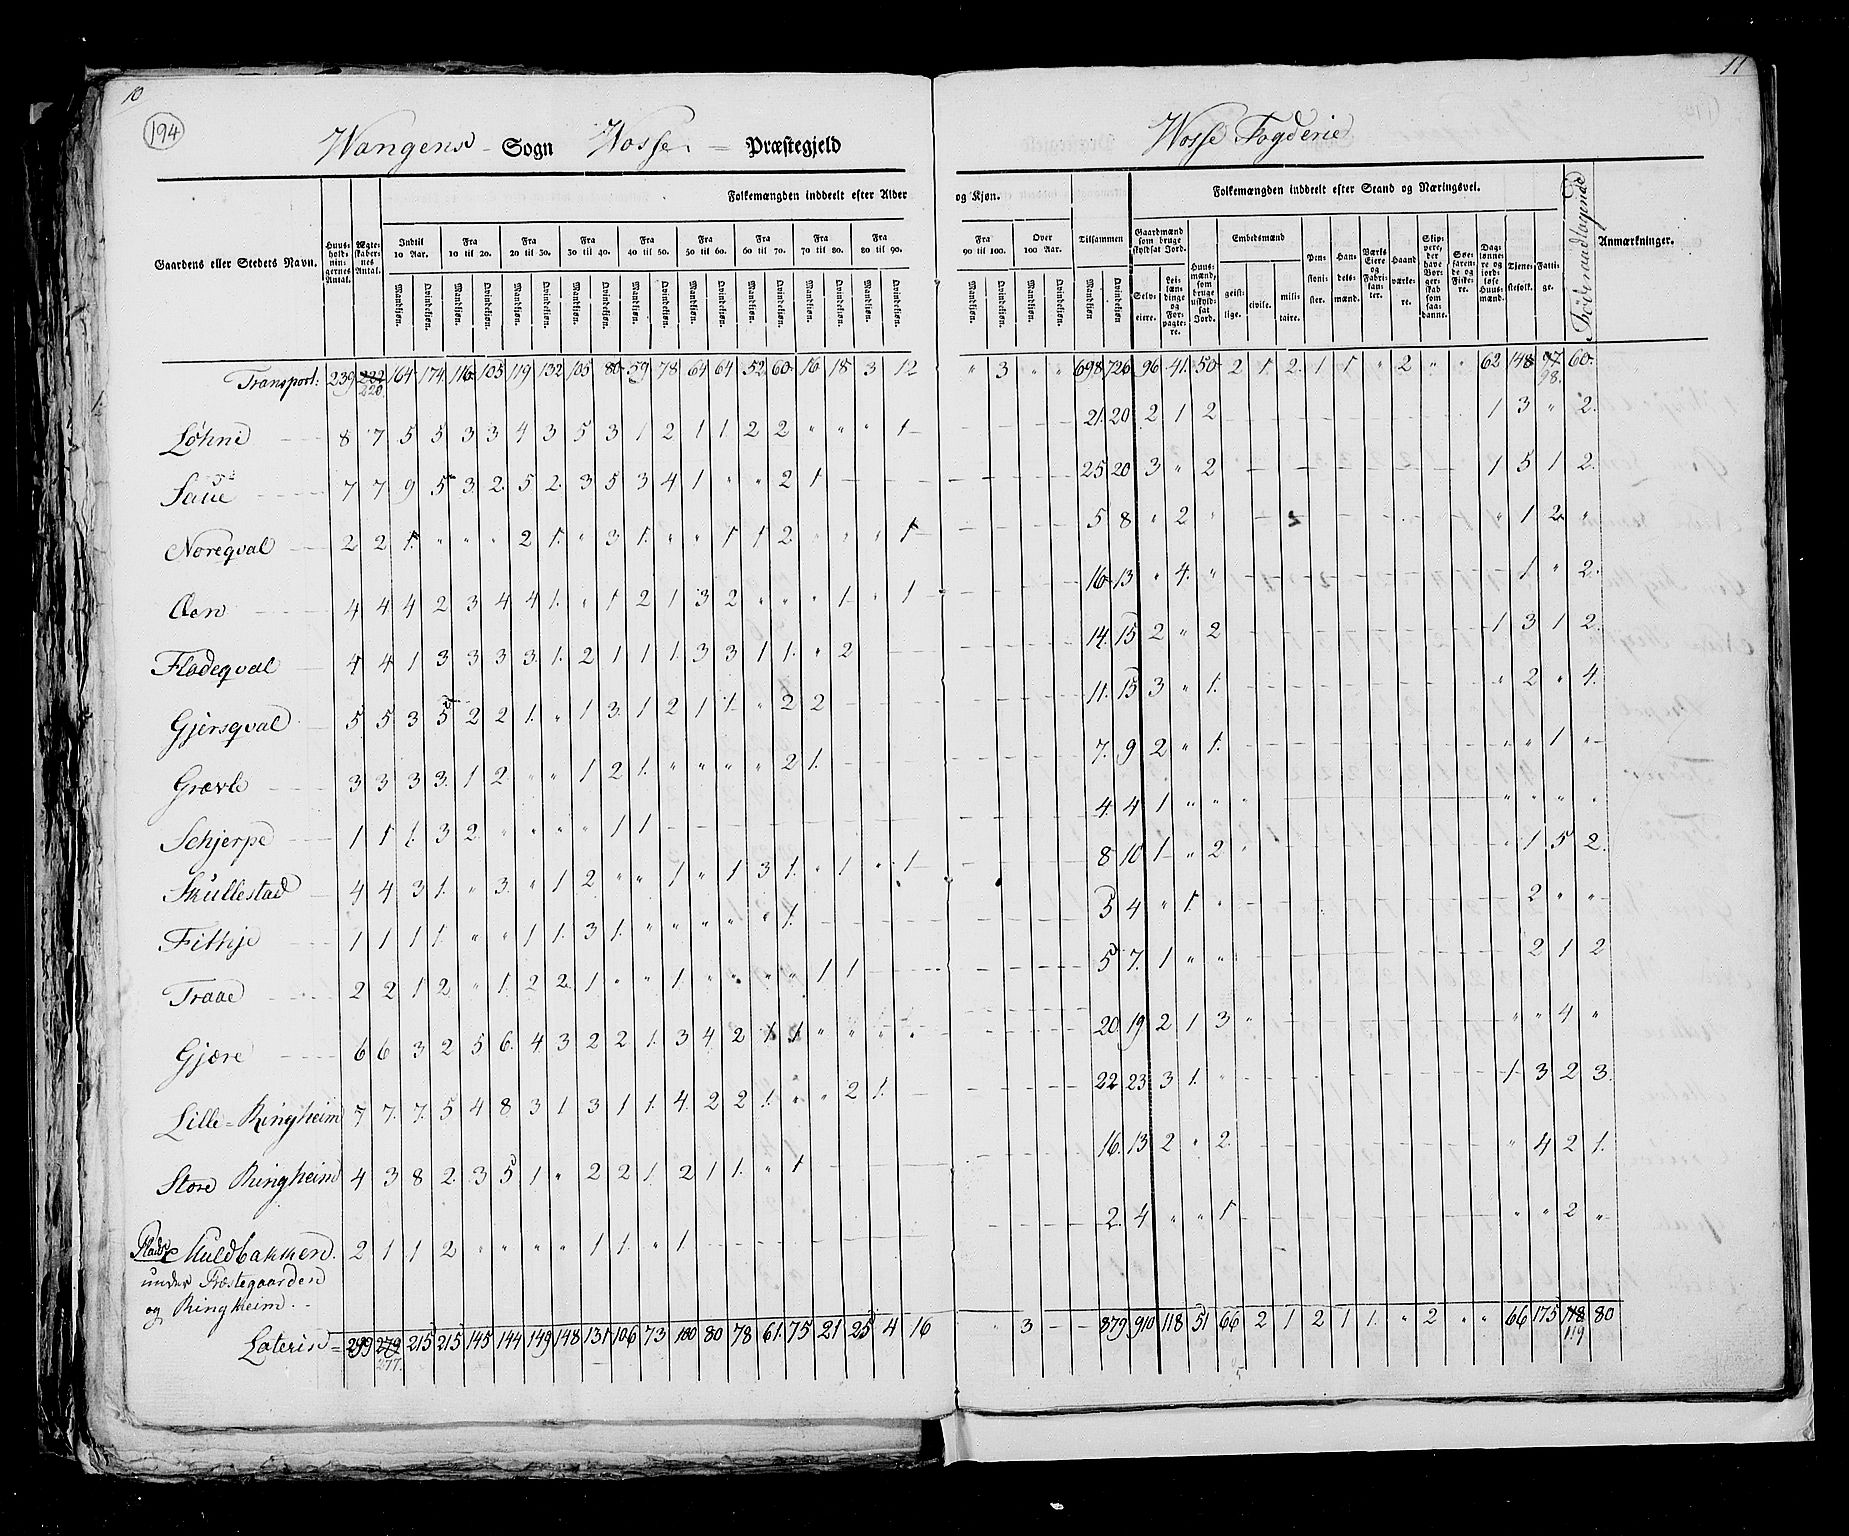 10
11
194
Wangens Sogn Vosse Præstegjeld
Wosse Fogderie
Gaardens eller Stedets Navn.
Huus-holdnin-gernes Antal.
Ægte-skaber-nes Antal.
Folkemængden inddeelt efter Alder og Kjøn.
Indtil 10 Aar. Fra 10 til 20. Fra 20 til 30. Fra 30 til 40. Fra 40 til 50. Fra 50 til 60. Fra 60 til 70. Fra 70 til 80. Fra 80 til 90. Fra 90 til 100. Over 100 Aar. Tilsammen
Mandkjøn. Qvindekjøn.
Folkemængden inddeelt efter Stand og Næringsvei.
Gaardmænd som bruge skyldsat Jord.
Selv-eiere.
Lei-læn-dinge og For-pagte-re.
Huus-mænd, som bruge uskyld-sat Jord.
Embedsmænd
geist-lige. civile. mili-taire.
Pen-sioni-ster.
Han-dels-mænd.
Værks-Eiere og Fabri-kan-ter.
Haand-værke-re.
Skip-pere, der have Bor-ger-skab som saa-danne.
Søe-faren-de og Fiske-re.
Dag-lønne-re og jord-løse Huus-mænd.
Tjene-stefolk.
Fatti-ge.
Föderaadtagende
Anmærkninger.
Transport: 239 222 220 164 174 116 105 119 132 105 80 59 78 64 64 52 60 16 18 3 12 " 3 " " 698 726 96 41 50 2 1 2 1 1 " 2 " " 62 148 97 98 60
Løhne 8 7 5 5 3 3 4 3 5 3 1 2 1 1 2 2 " " " 1 21 20 2 1 2 1 3 " 2
Saue 7 7 9 5 3 2 5 2 3 5 3 4 1 " " 2 1 25 20 3 " 2 1 5 1 2
Noreqval 2 2 1 " " " 2 1 " 3 1 " " 1 1 2 " " " 1 5 8 " 2 " " 1 2 "
Aen 4 4 4 2 3 4 4 1 " 1 2 1 3 2 " " " 1 " 1 16 13 " 4 " 1 " 2
Fladeqval 4 4 1 3 3 3 3 1 2 1 1 1 3 3 1 1 " 2 14 15 2 " 2 1 3 1 2
Gjersqval 5 5 3 5 2 2 1 " 1 3 1 2 1 1 " 2 2 11 15 3 " 1 " 2 " 4
Grævle 3 3 3 3 1 2 " " 1 2 1 " " " " 2 1 7 9 2 " 1 " " 1 "
Schjerpe 1 1 1 3 2 " " " " 1 1 4 4 1 " " " " " " "
Skullestad 4 4 3 1 " 3 " 1 2 " " 1 " 1 3 1 " 1 " 1 8 10 1 " 2 " 1 5 2
Fithje 1 1 1 1 " " 1 1 3 1 " " " " " 1 5 4 " 1 " 2 " "
Traae 2 2 1 2 " 1 2 2 1 " " 1 " " " " 1 1 5 7 1 " " 2 1 2
Gjære 6 6 3 2 5 6 4 3 2 2 1 3 4 2 1 1 " " " " 20 19 2 1 3 " " 4 "
Lille-Ringheim 7 7 7 5 4 8 3 1 3 1 1 4 2 2 1 " " 2 1 22 23 3 1 " 1 3 2 3
Store Ringheim 4 3 8 2 3 5 1 " 2 2 1 2 1 1 " 1 16 13 2 " 2 " 4 2 1
Pladse Kuldbakken 2 1 1 2 " " " " 1 1 " 1 2 4 " " 1 " " 2 "
under Præstegaarden
og Ringheim
Lateris = 299 279 277 215 215 145 144 149 148 131 106 73 100 80 78 61 75 21 25 4 16 " 3 879 910 118 51 66 2 1 2 1 1 " 2 " " 66 175 118 119 80